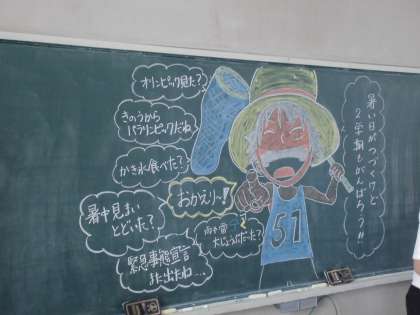 暑い日がつづくけど
2学期もがんばろう!!
オリンピック見た?
きのうから
パラリンピックだね
かき氷食べた?
おかえり〜!!
暑中見まい
とどいた?
雨や雷
大じょうぶだった?
緊急事態宣言
また出たね…
51